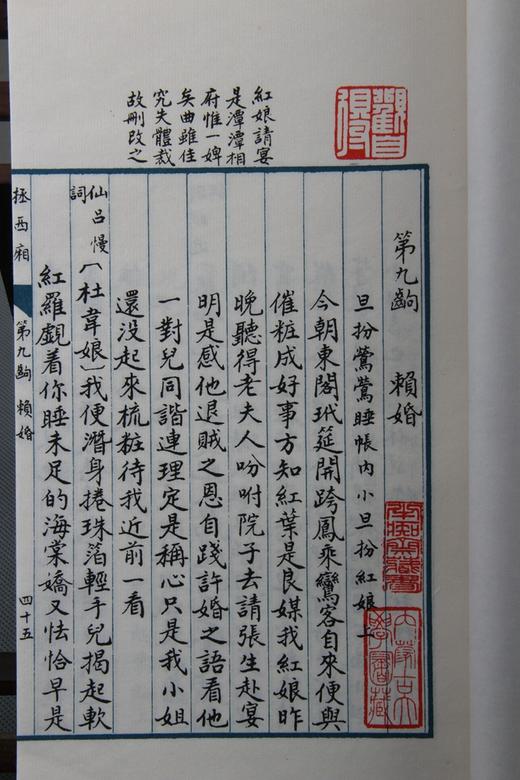 紅娘請宴
是潭潭相
府惟一婢
矣曲雖佳
究失體裁
故刪改之
第九齣 賴婚
旦扮鶯鶯睡帳內小旦扮紅娘上
今朝東閣玳筵開跨鳳乘鸞客自來便與
催粧成好事方知紅葉是良媒我紅娘昨
晚聽得老夫人吩咐院子去請張生赴宴
明是感他退賊之恩自踐許婚之語看他
一對兒同諧連理定是稱心只是我小姐
還没起來梳粧待我近前一看
仙呂慢詞〔杜韋娘〕我便潛身捲珠箔輕手兒揭起軟
紅羅覷着你睡未足的海棠嬌又怯恰早是
拯西廂 第九齣 賴婚 四十五
內蒙古大學圖書藏